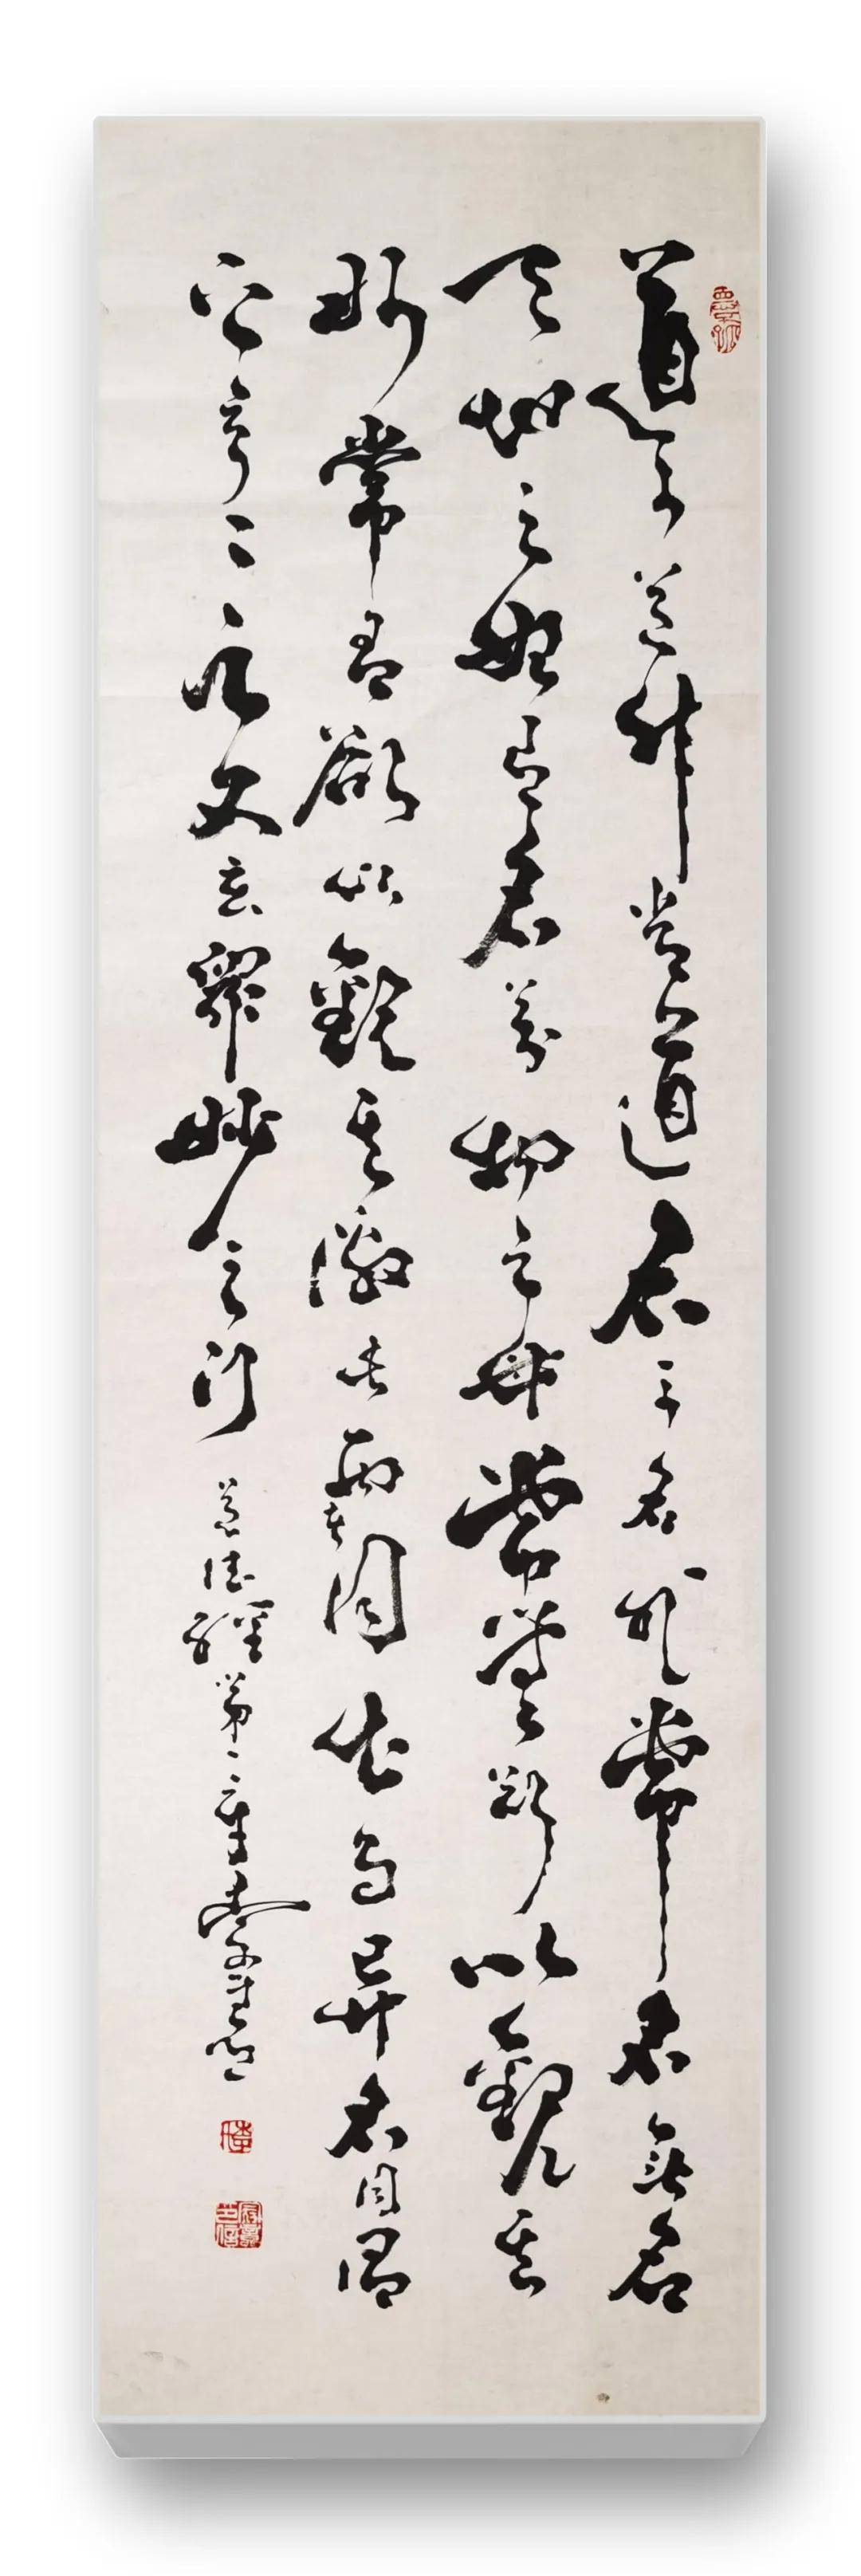 道可道非常道名可名非常名無名
天地之始有名萬物之母常無欲以觀其
妙常有欲以觀其徼此兩者同出而異名同謂
之玄玄之又玄眾妙之門
道德經第一章